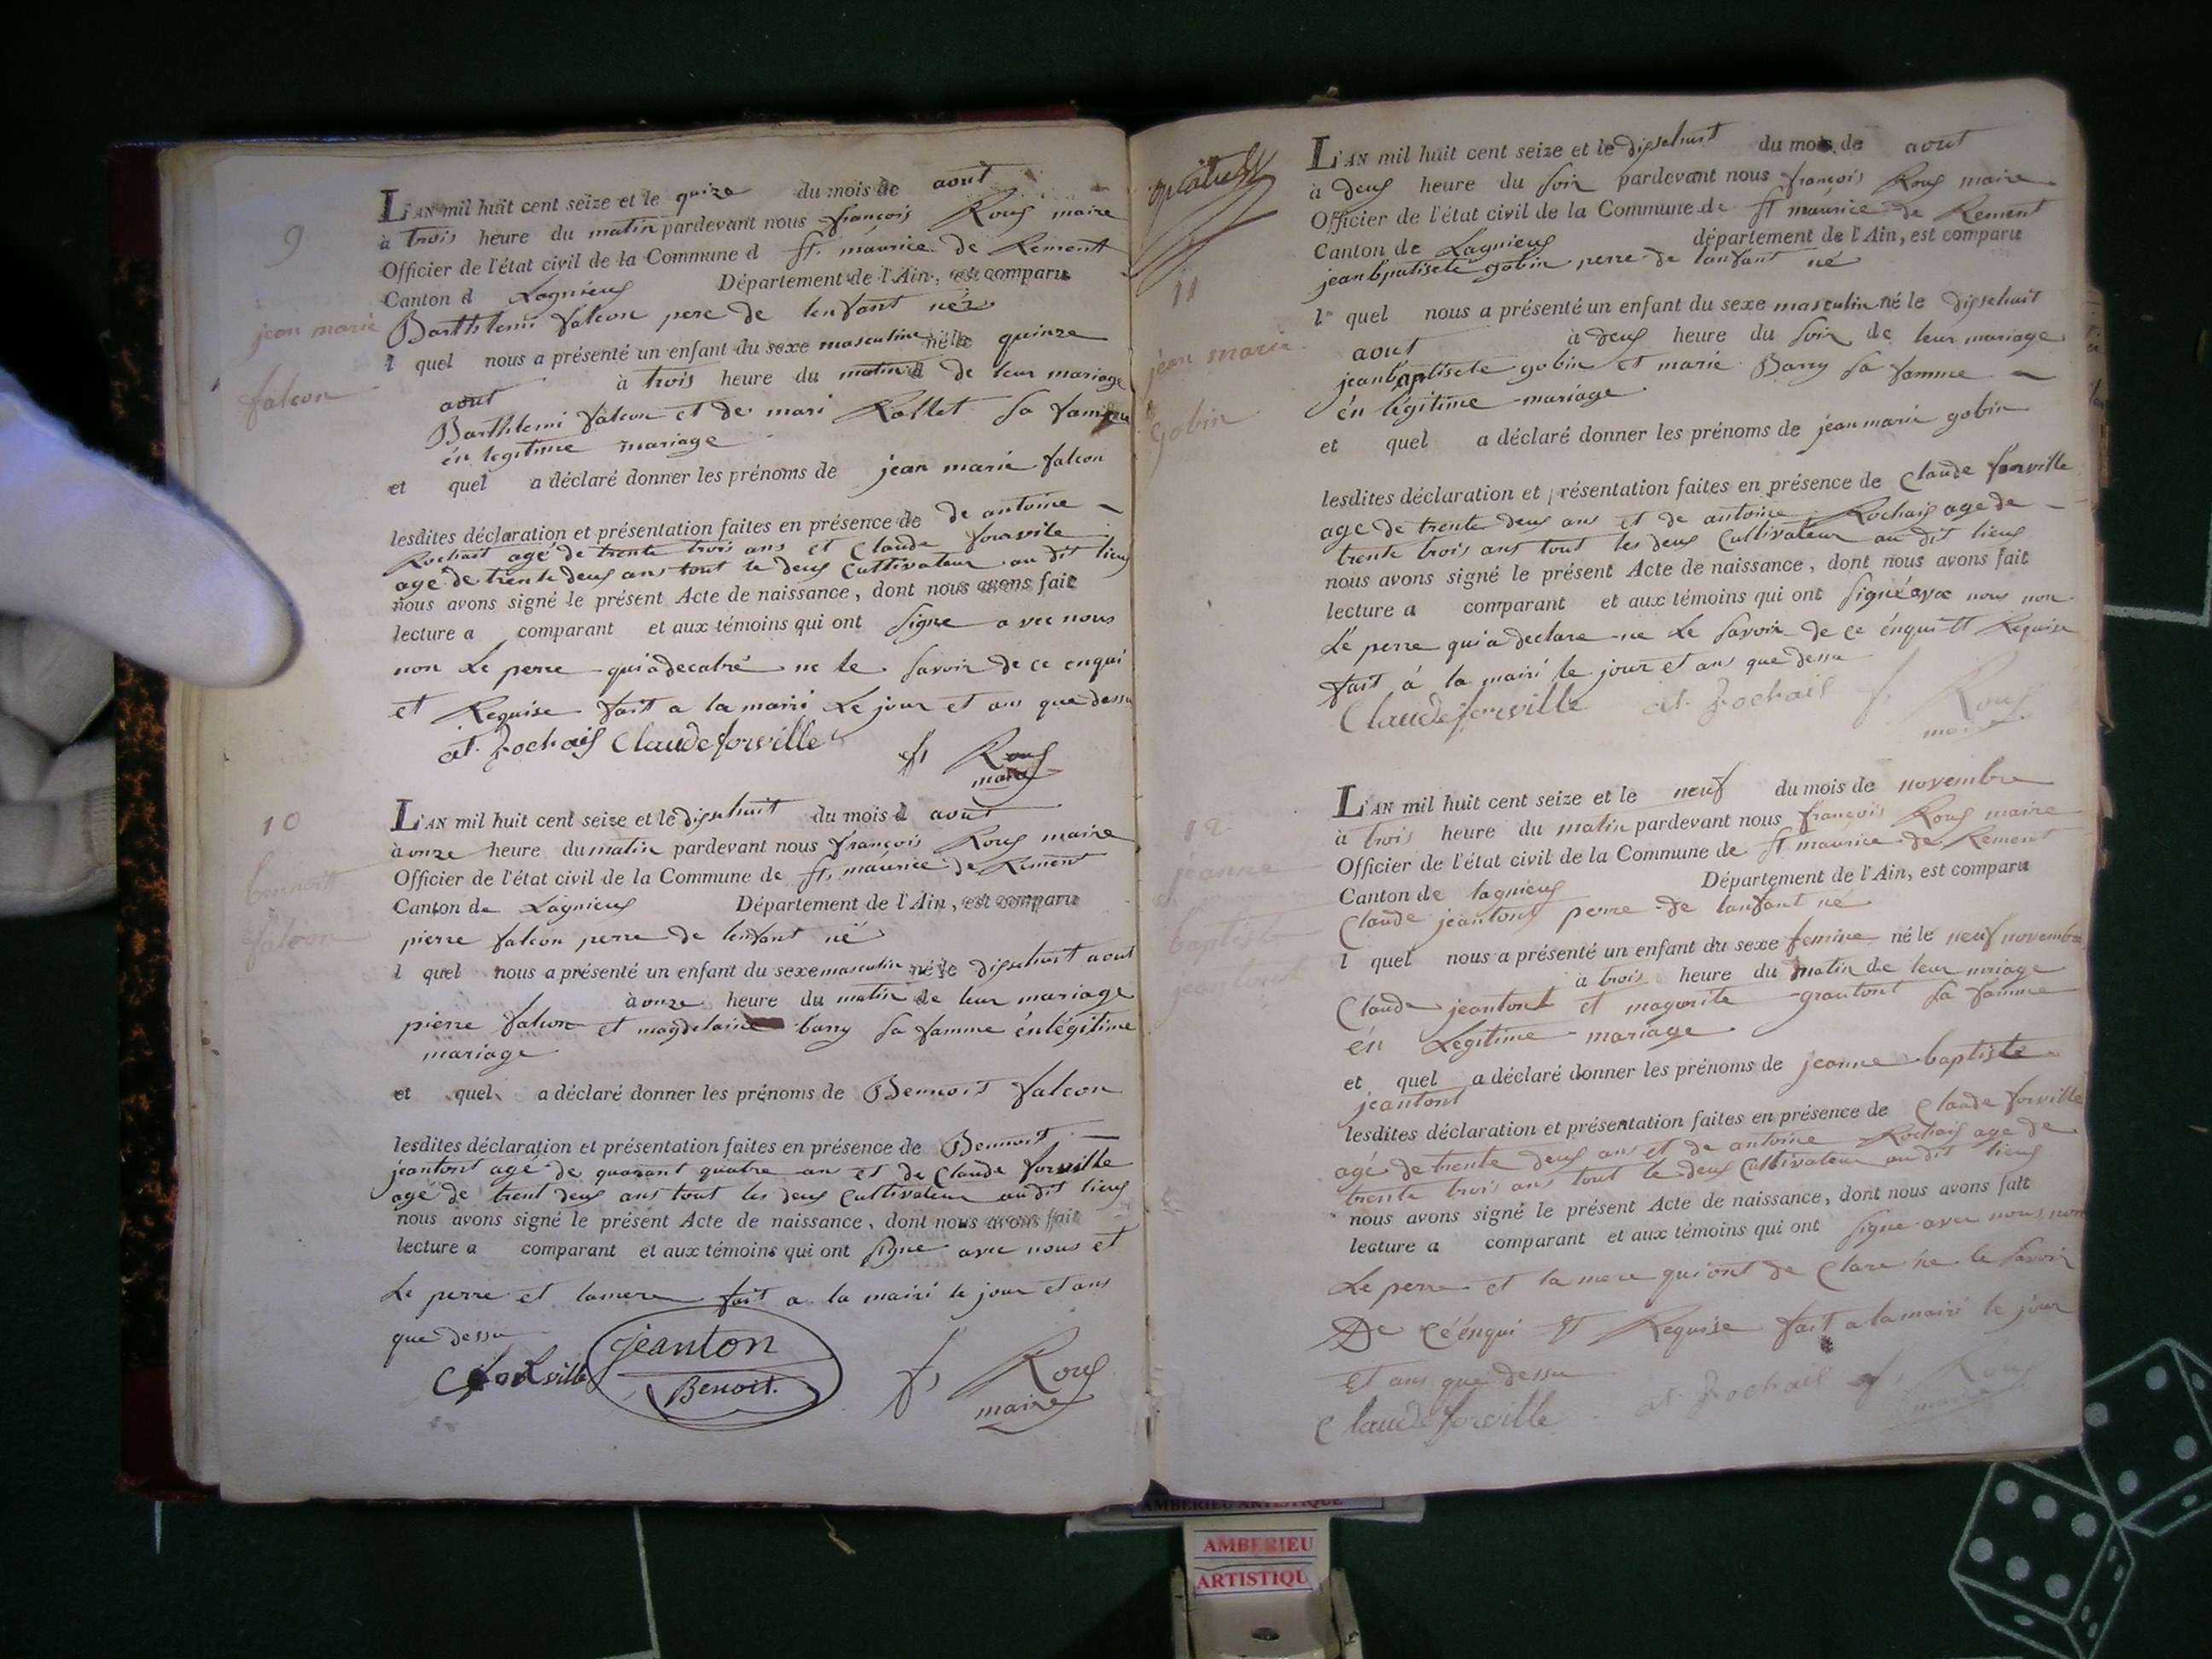 9
jean marie
falcon
L'AN mil huit cent seize et le quize du mois de aout
à trois heure du matin pardevant nous françois Roux maire
Officier de l'état civil de la Commune d St. maurice de Rement
Canton d Lagnieux Département de l'Ain, est comparu
Barthlemi falcon pere de lenfant néz
l quel nous a présenté un enfant du sexe masculin né le quinze
aout à trois heure du matin d de leur mariage
Barthlemi falcon et de mari Rollet sa famme
én legitime mariage
et quel a déclaré donner les prénoms de jean marie falcon
lesdites déclaration et présentation faites en présence de de antoine
Rochait agé de trente trois ans et Claude fourvile
agé de trente deux ans tout le deux Cultivateur au dit lieux
nous avons signé le présent Acte de naissance, dont nous avons fait
lecture a comparant et aux témoins qui ont signe avec nous
non Le perre qui a decalré ne le savoir de ce enqui
et Requise fait a la mairi Le jour et ans que dessu
at. Rochaix Claude forville
fs Roux
maire
10
bennoit
falcon
L'AN mil huit cent seize et le dixsehuit du mois d aout
à onze heure du matin pardevant nous françois Roux maire
Officier de l'état civil de la Commune de St. maurice de Rement
Canton de Lagnieux Département de l'Ain, est comparu
pierre falcon perre de lenfant né
l quel nous a présenté un enfant du sexe masculin né le dixsehuit aout
à onze heure du matin de leur mariage
pierre falcon et magdelaine barry sa famme én légitime
mariage
et quel a déclaré donner les prénoms de Bennoit falcon
lesdites déclaration et présentation faites en présence de Bennoit
jeantont agé de quarant quatre an et de Claude forville
agé de trent deux ans tout les deux Cultivateur au dit lieux
nous avons signé le présent Acte de naissance, dont nous avons fait
lecture a comparant et aux témoins qui ont signe avec nous et
Le perre et lamere fait a la mairi le jour et ans
que dessu
forville jeanton
Benoit.
fs Roux
maire
11
jean marie
gobin
L'AN mil huit cent seize et le dixsehuit du mois de aout
à deux heure du soir pardevant nous françois Roux maire
Officier de l'état civil de la Commune de St maurice de Rement
Canton de Lagnieux département de l'Ain, est comparu
jean bpatisete gobin perre de lanfant né
le quel nous a présenté un enfant du sexe masculin né le dixsehuit
aout à deux heure du soir de leur mariage
jean baptisete gobin et marie Barry sa famme
én légitime mariage
et quel a déclaré donner les prénoms de jean marie gobin
lesdites déclaration et présentation faites en présence de Claude fourville
age de trente deux ans et de antoine Rochaix age de
trente trois ans tout les deux Cultivateur au dit lieux
nous avons signé le présent Acte de naissance, dont nous avons fait
lecture a comparant et aux témoins qui ont signé avce nous non
Le perre qui a declare ne Le savoir de ce énqui et Réquise
fait à la mairi le jour et ans que dessu
Claude forville at. Rochaix fs Roux
maire
12
jeanne
baptiste
jeantont
L'AN mil huit cent seize et le neuf du mois de novembre
à trois heure du matin pardevant nous françois Roux maire
Officier de l'état civil de la Commune de St maurice de Rement
Canton de lagnieux Département de l'Ain, est comparu
Claude jeantont perre de lanfant né
l quel nous a présenté un enfant du sexe femine né le neuf novembre
à trois heure du matin de leur mriage
Claude jeantont et magorite grantont sa famme
én Legitime mariage
et quel a déclaré donner les prénoms de jeanne baptiste
jeantont
lesdites déclaration et présentation faites en présence de Claude forville
agé de trente deux ans et de antoine Rochaix age de
trente trois ans tout le deux Cultivateur au dit lieux
nous avons signé le présent Acte de naissance, dont nous avons fait
lecture a comparant et aux témoins qui ont signe avec nous non
Le perre et la mere qui ont de Clare ne le savoir
De Cé énqui et Requise fait a la mairi le jour
Et ans que dessu
Claude forville at. Rochaix fs Roux
maire
AMBERIEU ARTISTIQUE
AMBERIEU
ARTISTIQU